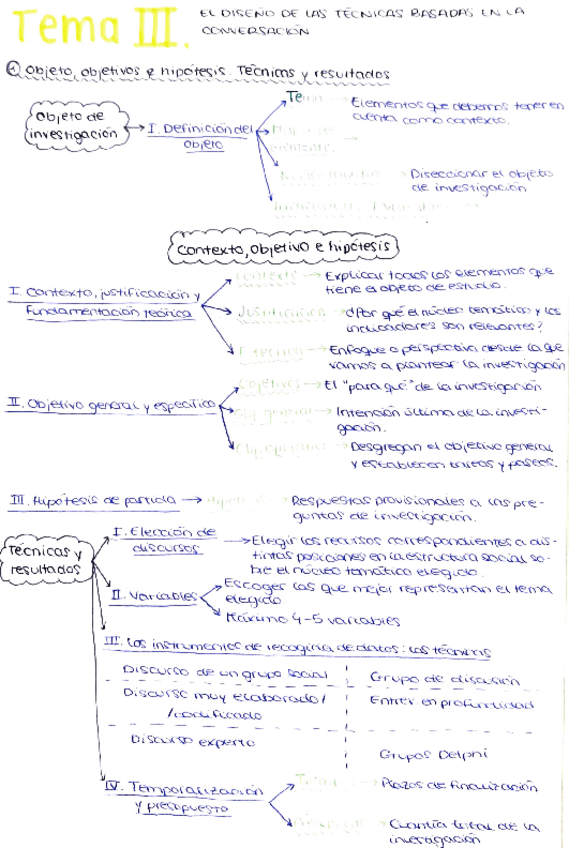 Tema III.
EL DISEÑO DE LAS TÉCNICAS BASADAS EN LA
CONVERSACIÓN
① Objeto, objetivos e hipótesis. Técnicas y resultados
Objeto de
investigación
I. Definición del
objeto
Tema
Elementos que debemos tener en
cuenta como contexto.
Diseccionar el objeto
de investigación
Contexto, objetivo e hipótesis
I. Contexto, justificación y
Fundamentación teórica
Contexto
Explicar todos los elementos que
tiene el objeto de estudio.
Justificación
¿Por qué el núcleo temático y los
indicadores son relevantes?
F. teórica
Enfoque o perspectiva desde la que
vamos a plantear la investigación
II. Objetivo general y específico
Objetivos
El "para qué" de la investigación
Obj. general
Intención última de la investi-
gación.
Obj. específicos
Desgregan el objetivo general
y establecen tareas y pasos.
III. Hipótesis de partida
Respuestas provisionales a las pre-
guntas de investigación.
Técnicas y
resultados
I. Elección de
discursos
Elegir los recursos correspondientes a dis-
tintas posiciones en la estructura social so-
bre el núcleo temático elegido.
II. Variables
Escoger las que mejor representan el tema
elegido
Máximo 4-5 variables
III. Los instrumentos de recogida de datos: las técnicas
Discurso de un grupo social
Grupo de discusión
Discurso muy elaborado/
/codificado
Entrev. en profundidad
Discurso experto
Grupos Delphi
IV. Temporalización
y presupuesto
Plazos de finalización
Cuantía total de la
investigación